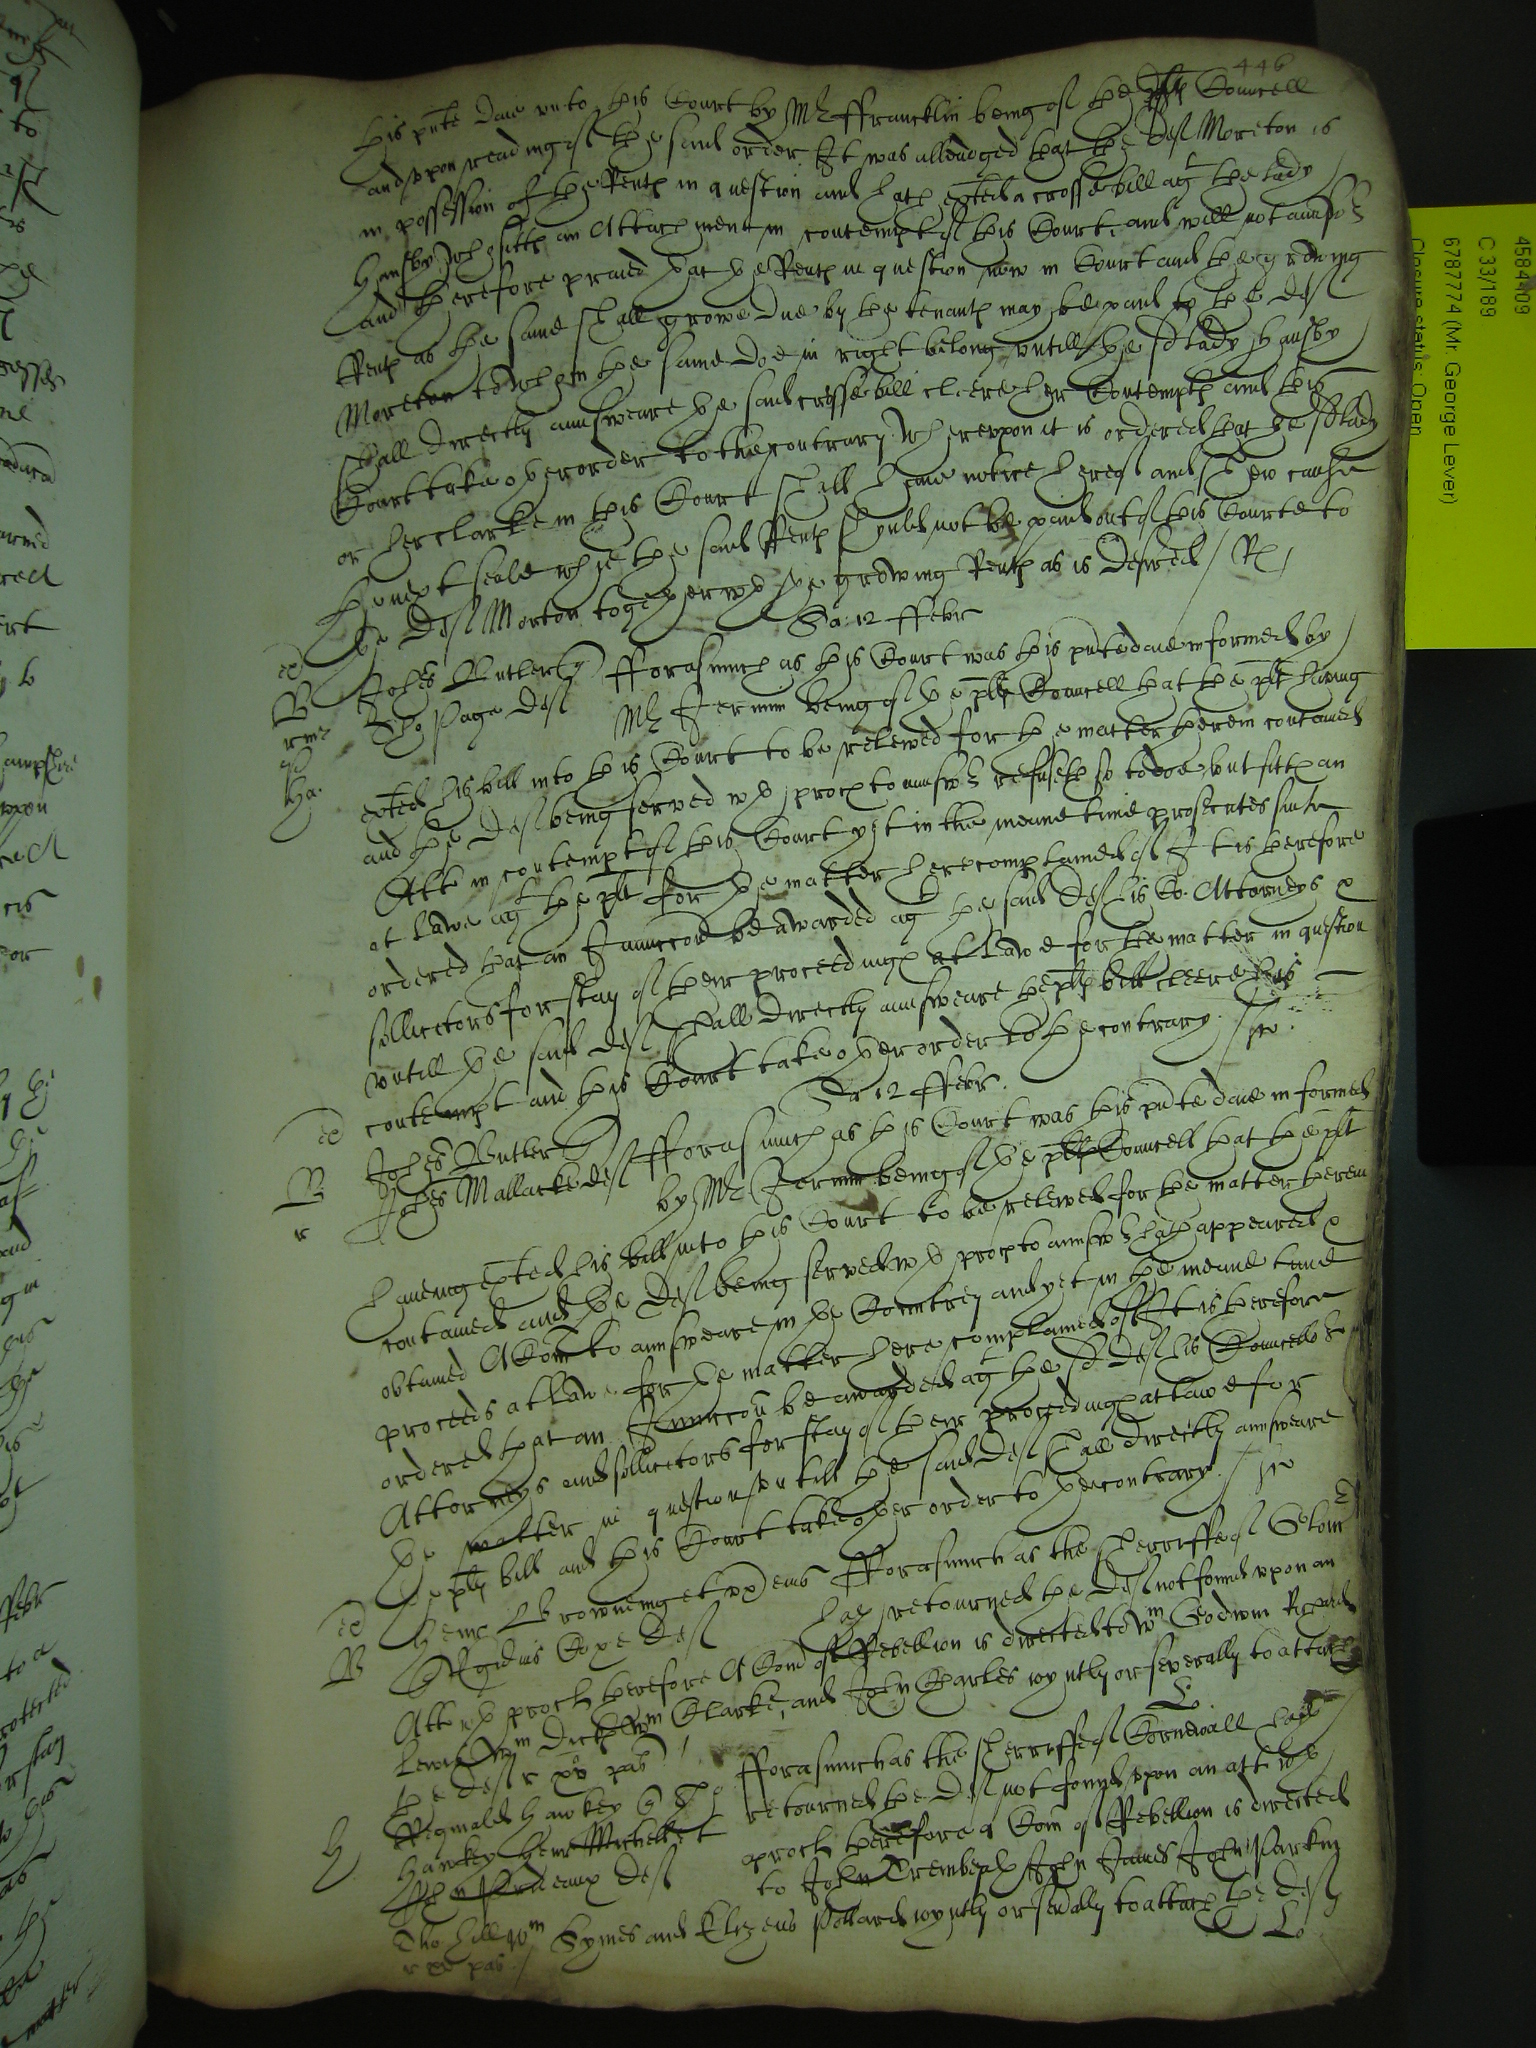 446
this pnte daie vnto this Court by Mr ffrancklin being of the plts Councell
and vpon reading of the said order It was alleadged that the def Moreton is
in possession of the Rents in question and hath exted a crosse bill agt the lady
Hansby who sitts an Attachment in contempt of this Court and will not answer
and therefore praied that the Rents in question now in Court and the growing
Rents as the same shall growe due by the tenants may be paid to the def
Moreton to whom the same doe in right belong vntill the sd lady Hansby
shall directly answeare the said crosse bill cleere her Contempts and this
Court take other order to the contrary Wherevpon it is ordered that the sd lady
or her clarke in this Court shall have notice hereof and shew cause
the next seale why the said Rents should not be paid out of this Courte to
the def Morton together wth the growing Rents as is desired / Rs /
Sa: 12 ffebr
Johes Butler qr
Tho Page def
fforasmuch as this Court was this pnte daie informed by
Mr Jermin being of the plts Councell that the plt having
exted his bill into this Court to be releived for the matter therein contained
and the def being served wth proces to answer refuseth so to doe but sitts an
Att in contempt of this Court yet in the meane time prosecutes suite
at Lawe agt the plt for the matter here complained of It is therefore
ordered that an Iniunccon be awarded agt the said def his Co: Attorneys &
sollicitors for stay of their proceedings at Lawe for the matter in question
vntill the said def shall directly answeare the plts bill cleere his
contempt and this Court take other order to the contrary. /
Sa 12 ffebr.
Johes Butler qr
Johes Mallacke def
fforasmuch as this Court was this pnte daie informed
by Mr Jermin being of the plts Councell that the plt
haueing exted his bill into this Court to be releived for the matter therein
contained and the def being served wth proces to answer hath appeared &
obtained A Com to answeare in the Countrey and yet in the meane time
proceeds at Lawe for the matter here complained of It is therefore
ordered that an Iniunccon be awarded agt the sd def his Councello
Attorneys and sollicitors for stay of their proceedings at Lawe for
the matter in question vntill the said def shall directly answeare
the plts bill and this Court take other order to the contrary. /
Henr Browneing et vx quer
Egidius Coxe def
fforasmuch as the Sherriffe of
hath retourned the def not found vpon an
Att wth procl therefore A Com of Rebellion is directed to Wm Godwin Richard
Lewis Wm Dicks Wm Clarke, and John Charles ioyntly or severally to attach
the def r xv pas
Reginald Hawkey
Hawkey Henr Michell et
John Prideaux def
fforasmuch as the Sherriffe of Cornewall hath
retourned the def not found vpon an att wth
procl therefore a Com of Rebellion is directed
to John Trembeth John James John Parkin
Tho hill Wm Symes and Pollard ioyntly or sevally to attach the def
r xv pas
4584409
C 33/189
6787774 (Mr. George Lever)
Closure status: Open